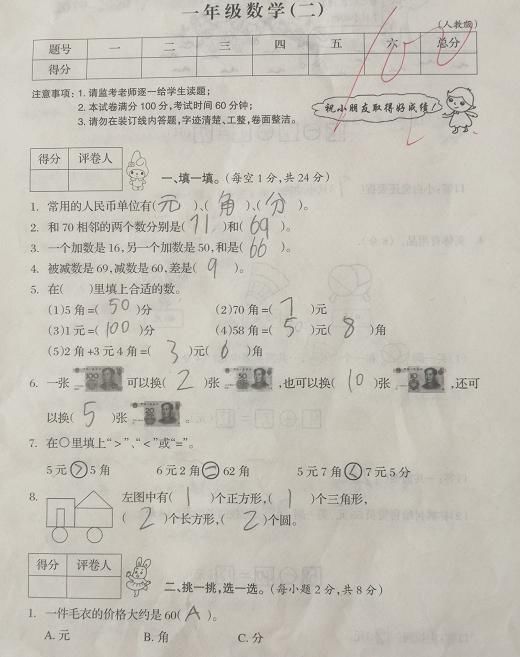 一年级数学(二)
(人教版)
题号 一 二 三 四 五 六 总分
得分
100
注意事项：1. 请监考老师逐一给学生读题；
2. 本试卷满分 100 分，考试时间 60 分钟；
3. 请勿在装订线内答题，字迹清楚、工整，卷面整洁。
祝小朋友取得好成绩！
得分 评卷人
一、填一填。(每空 1 分，共 24 分)
1. 常用的人民币单位有(元)、(角)、(分)。
2. 和 70 相邻的两个数分别是(71)和(69)。
3. 一个加数是 16，另一个加数是 50，和是(66)。
4. 被减数是 69，减数是 60，差是(9)。
5. 在( )里填上合适的数。
(1)5 角=(50)分 (2)70 角=(7)元
(3)1 元=(100)分 (4)58 角=(5)元(8)角
(5)2 角+3 元 4 角=(3)元(6)角
6. 一张 100 可以换(2)张 50 ，也可以换(10)张 10 ，还可
以换(5)张 20 。
7. 在○里填上“>”、“<”或“=”。
5 元>5 角 6 元 2 角=62 角 5 元 7 角<7 元 5 分
8. 左图中有(1)个正方形，(1)个三角形，
(2)个长方形，(2)个圆。
得分 评卷人
二、挑一挑，选一选。(每小题 2 分，共 8 分)
1. 一件毛衣的价格大约是 60(A)。
A. 元 B. 角 C. 分